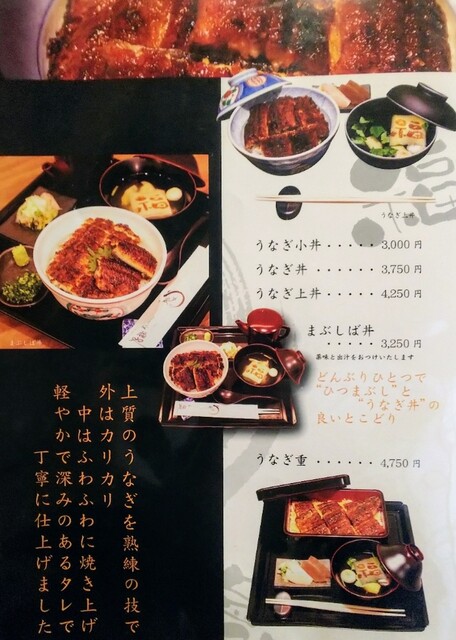 うなぎ上丼
うなぎ小丼・・・・・3,000円
うなぎ丼・・・・・3,750円
うなぎ上丼・・・・・4,250円
まぶしば丼
・・・・・3,250円
薬味と出汁をおつけいたします
どんぶりひとつで
"ひつまぶし"と
"うなぎ丼"の
良いとこどり
うなぎ重・・・・・4,750円
まぶしば丼
上質のうなぎを熟練の技で
外はカリカリ
中はふわふわに焼き上げ
軽やかで深みのあるタレで
丁寧に仕上げました